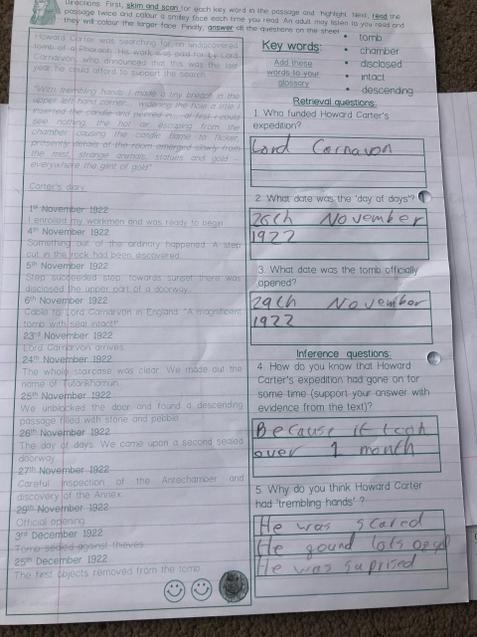 Directions: First, skim and scan for each key word in the passage and highlight. Next, read the
passage twice and colour a smiley face each time you read. An adult may listen to you read and
they will colour the larger face. Finally, answer all the questions on the sheet
Howard Carter was searching for an undiscovered
tomb of a Pharaoh. His work was paid for by Lord
Carnarvon, who announced that this was the last
year he could afford to support the search.
"With trembling hands I made a tiny breach in the
upper left hand corner... widening the hole a little I
inserted the candle and peered in... at first I could
see nothing, the hot air escaping from the
chamber causing the candle flame to flicker,
presently details of the room emerged slowly from
the mist, strange animals, statues and gold -
everywhere the glint of gold"
Carter's diary
1st November 1922
I enrolled my workmen and was ready to begin
4th November 1922
Something out of the ordinary happened. A step
cut in the rock had been discovered.
5th November 1922
Step succeeded step, towards sunset there was
disclosed the upper part of a doorway.
6th November 1922
Cable to Lord Carnarvon in England. "A magnificent
tomb with seal intact!"
23rd November 1922
Lord Carnarvon arrives
24th November 1922
The whole staircase was clear. We made out the
name of Tutankhamun.
25th November 1922
We unblocked the door and found a descending
passage filled with stone and pebble
26th November 1922
The day of days. We came upon a second sealed
doorway
27th November 1922
Careful inspection of the Antechamber and
discovery of the Annex.
29th November 1922
Official opening
3rd December 1922
Tomb sealed against thieves
25th December 1922
The first objects removed from the tomb
Key words:
Add these
words to your
glossary
• tomb
• chamber
• disclosed
• intact
• descending
Retrieval questions:
1. Who funded Howard Carter's
expedition?
Lord Carnavon
2. What date was the 'day of days'?
26th November
1922
3. What date was the tomb officially
opened?
29th November
1922
Inference questions:
4. How do you know that Howard
Carter's expedition had gone on for
some time (support your answer with
evidence from the text)?
Because it took
over 1 month
5. Why do you think Howard Carter
had 'trembling hands'?
He was scared
He gound lots
He was suprised